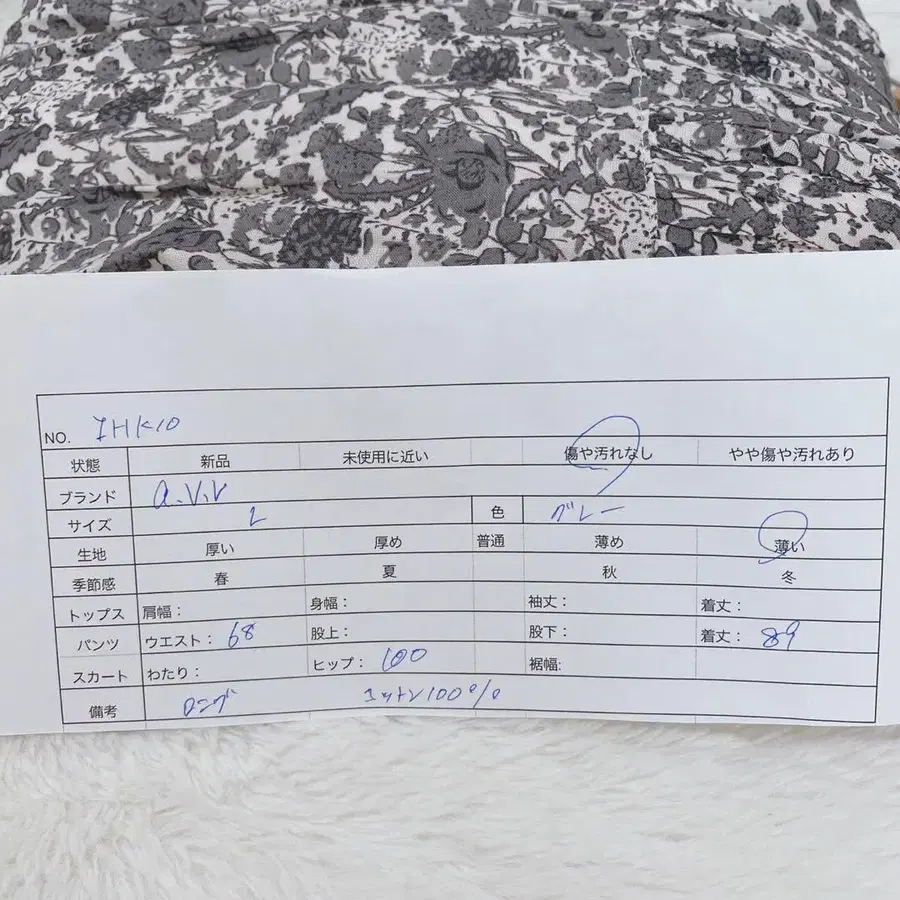 NO. IHK10
状態 新品 未使用に近い 傷や汚れなし やや傷や汚れあり
ブランド a.v.v
サイズ L 色 グレー
生地 厚い 厚め 普通 薄め 薄い
季節感 春 夏 秋 冬
トップス 肩幅： 身幅： 袖丈： 着丈：
パンツ ウエスト： 68 股上： 股下： 着丈： 89
スカート わたり： ヒップ： 100 裾幅:
備考 ロング コットン100%